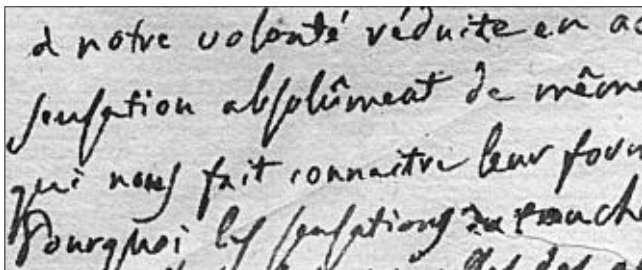 à notre volonté réduite en ac
sensation absolûment de même
qui nous fait connaitre leur form
Pourquoi les sensations du touche
des des